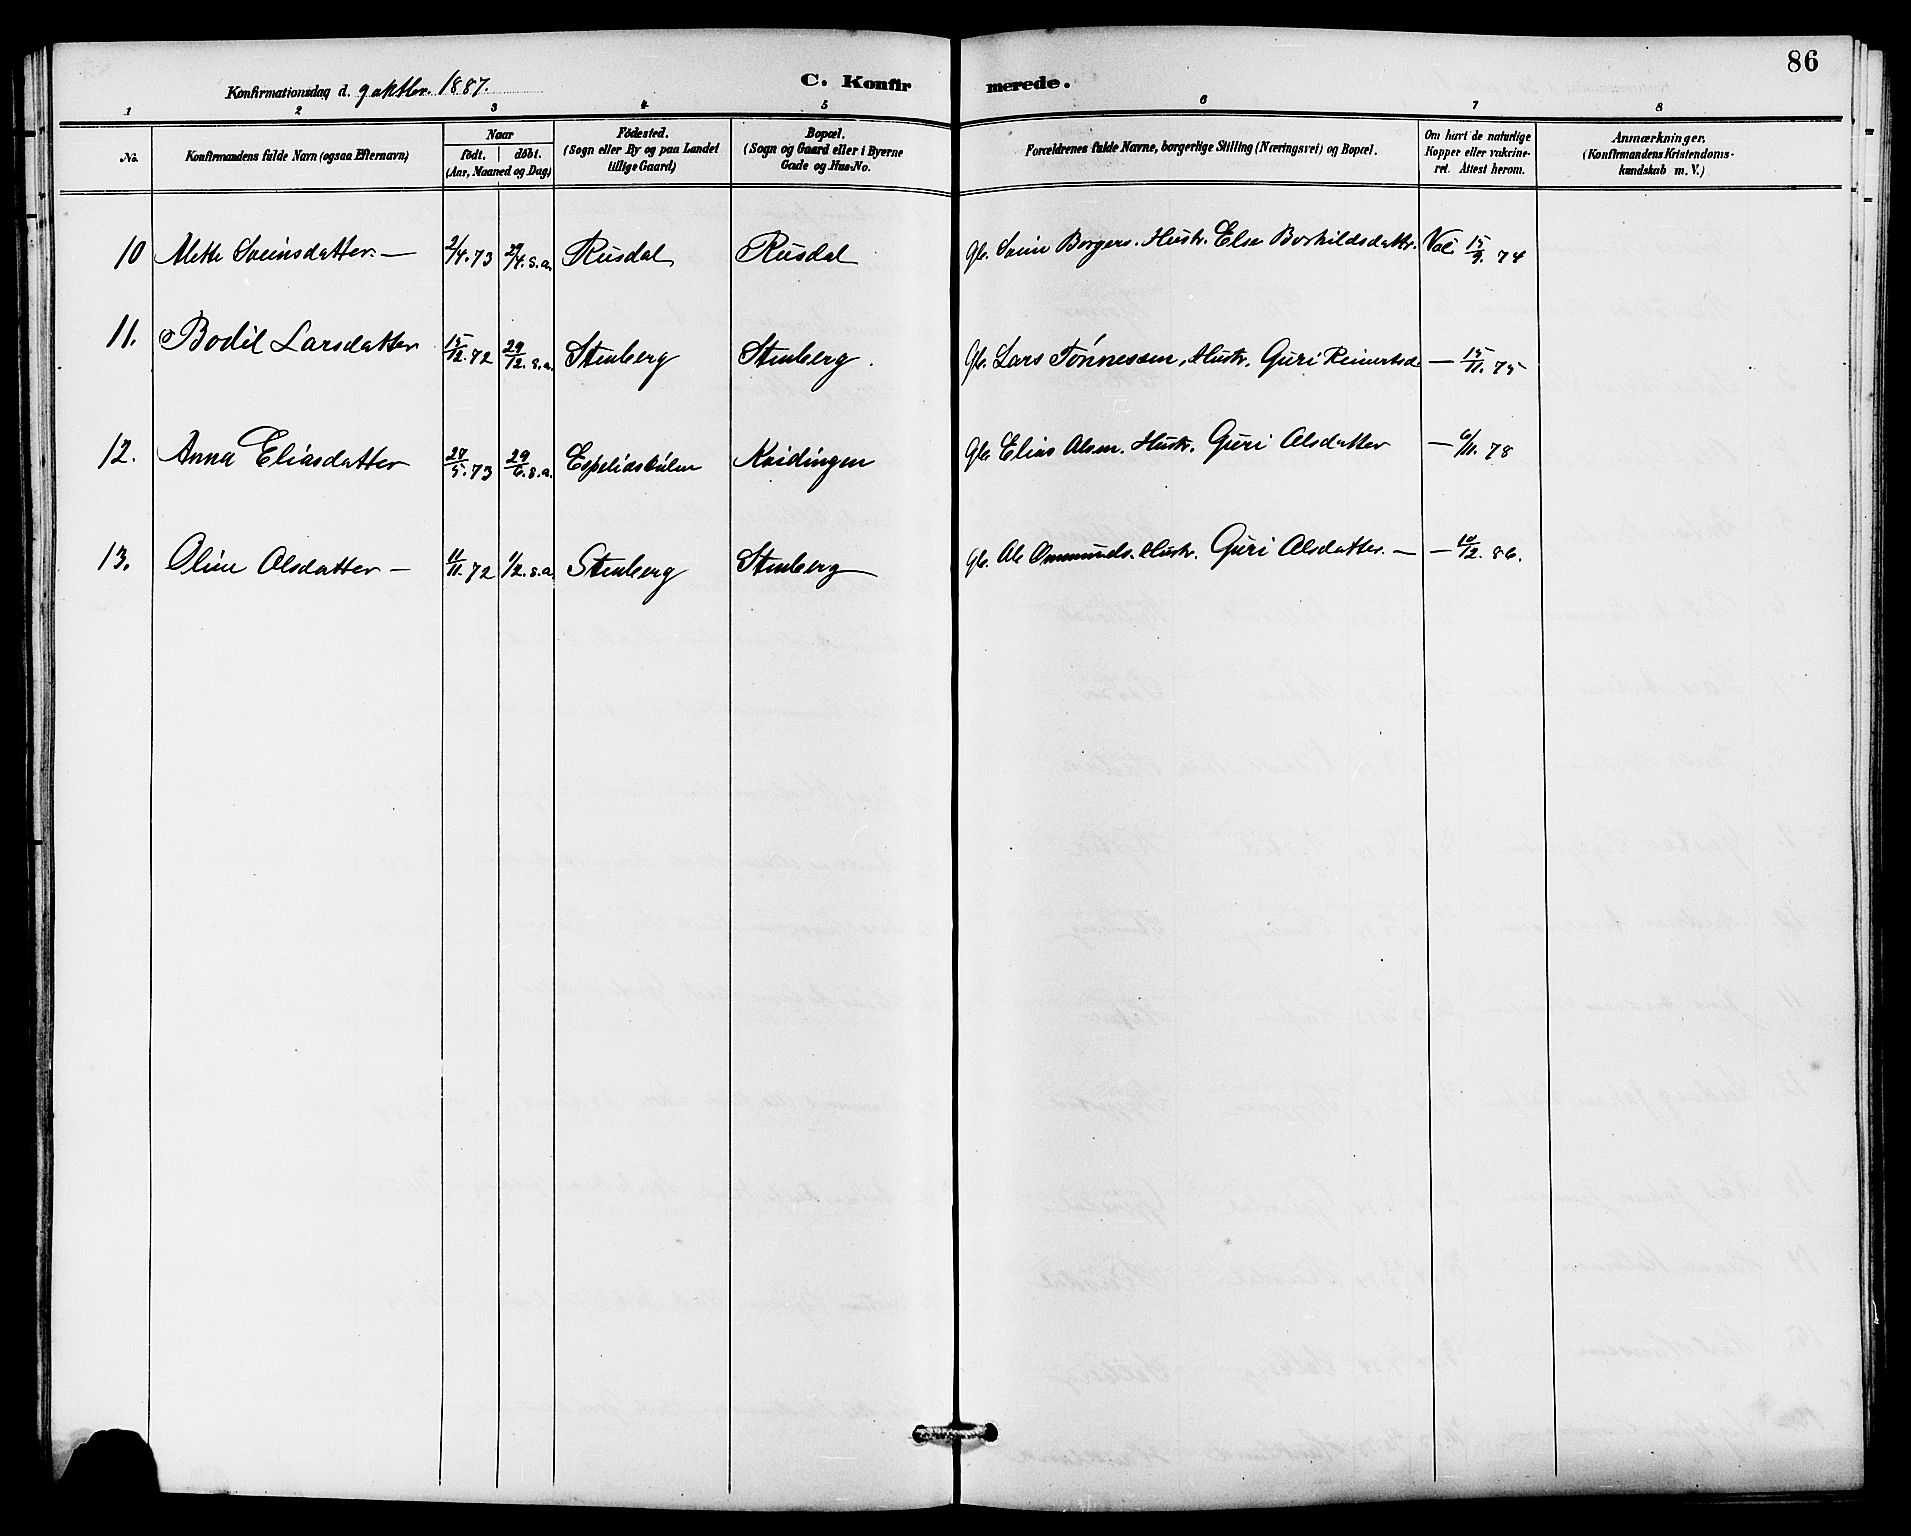 86
Konfirmationsdag d. 9 oktbr. 1887.
C. Konfirmerede.
1 2 3 4 5 6 7 8
No.
Konfirmandens fulde Navn (ogsaa Efternavn)
Naar
født. døbt.
(Aar, Maaned og Dag)
Fødested.
(Sogn eller By og paa Landet
tillige Gaard)
Bopæl.
(Sogn og Gaard eller i Byerne
Gade og Hus-No.
Forældrenes fulde Navne, borgerlige Stilling (Næringsvei) og Bopæl.
Om havt de naturlige
Kopper eller vakcine-
ret. Attest herom.
Anmærkninger.
(Konfirmandens Kristendoms-
kundskab m. V.)
10 Alette Sveinsdatter. — 2/4.73 29/4.s.a. Rusdal Rusdal Gb. Svein Borgers. Hustr. Else Borhildsdattr. Vac. 15/9. 74
11. Bodil Larsdatter 15/12.72 29/12.s.a. Stenberg Stenberg. Gb. Lars Tønnessen, Hustr. Guri Reinertsd. — 15/11. 75
12. Anna Eliasdatter 27/5.73 29/6.s.a. Espelidskulen Kvidingen Gb. Elias Alsen. Hustr. Guri Alsdatter — 6/11. 78
13. Oline Alsdatter — 11/11.72 1/12.s.a. Stenberg Stenberg Gb. Ale Ommunds. Hustr. Guri Alsdatter. — — 10/2. 86.